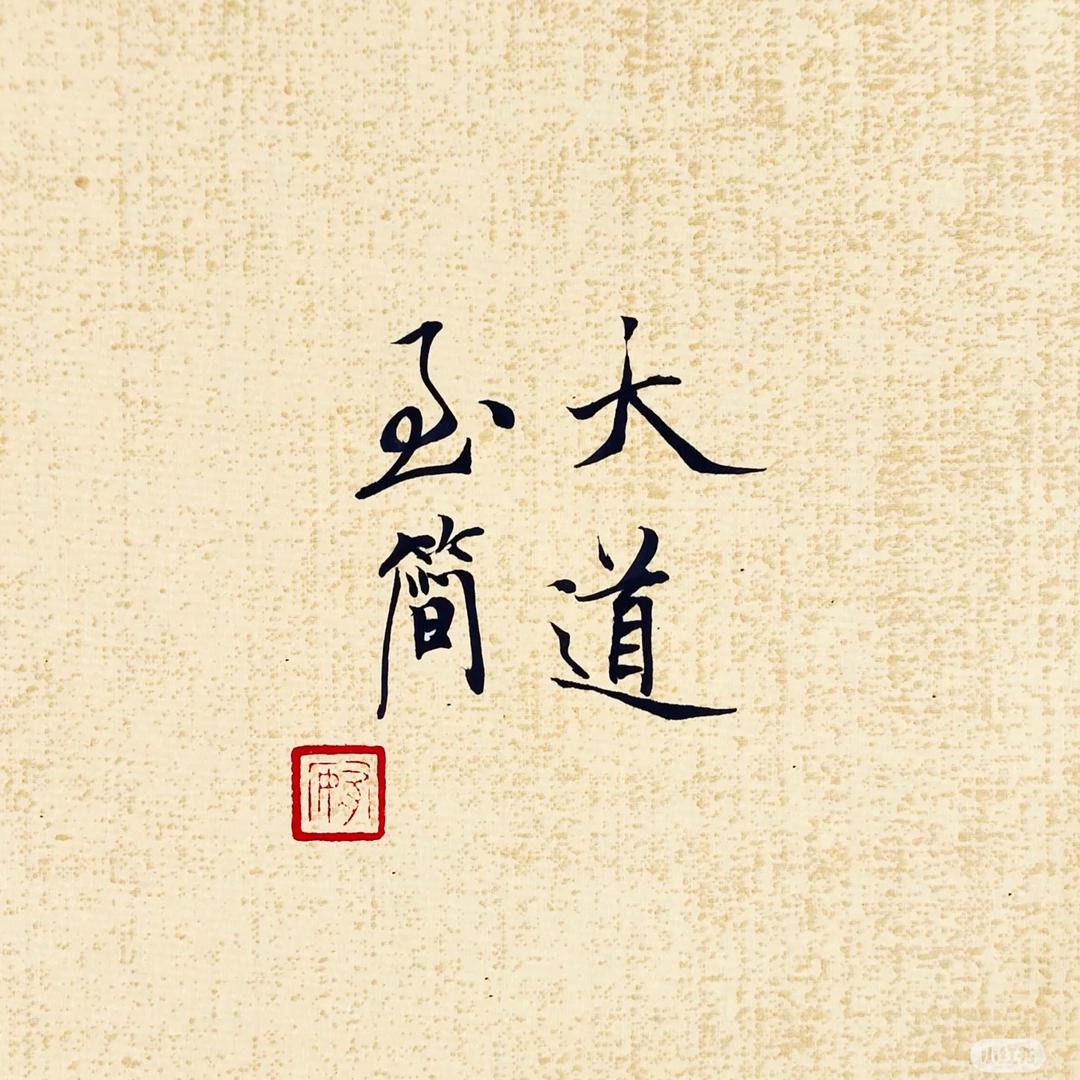 大道
至簡
小红书